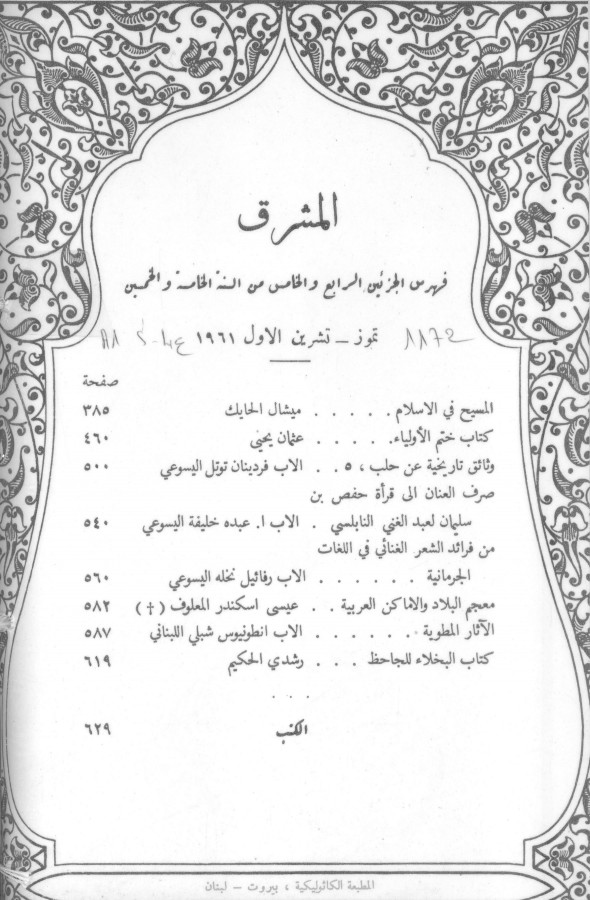 المشرق
فهرس الجزئين الرابع والخامس من السنة الخامسة والخمسين
تموز – تشرين الاول ١٩٦١
صفحة
المسيح في الاسلام . . . . . ميشال الحايك ٣٨٥
كتاب ختم الأولياء . . . . . عثمان يحيى ٤٦٠
وثائق تاريخية عن حلب ، ٥ . . الاب فردينان توتل اليسوعي ٥٠٠
صرف العنان الى قرأة حفص بن
سليمان لعبد الغني النابلسي . الاب ا. عبده خليفة اليسوعي ٥٤٠
من فرائد الشعر الغنائي في اللغات
الجرمانية . . . . . . الاب رفائيل نخله اليسوعي ٥٦٠
معجم البلاد والاماكن العربية . . عيسى اسكندر المعلوف (†) ٥٨٢
الآثار المطوية . . . . . . الاب انطونيوس شبلي اللبناني ٥٨٧
كتاب البخلاء للجاحظ . . . رشدي الحكيم ٦١٩
. . .
الكتب ٦٢٩
المطبعة الكاثوليكية ، بيروت – لبنان